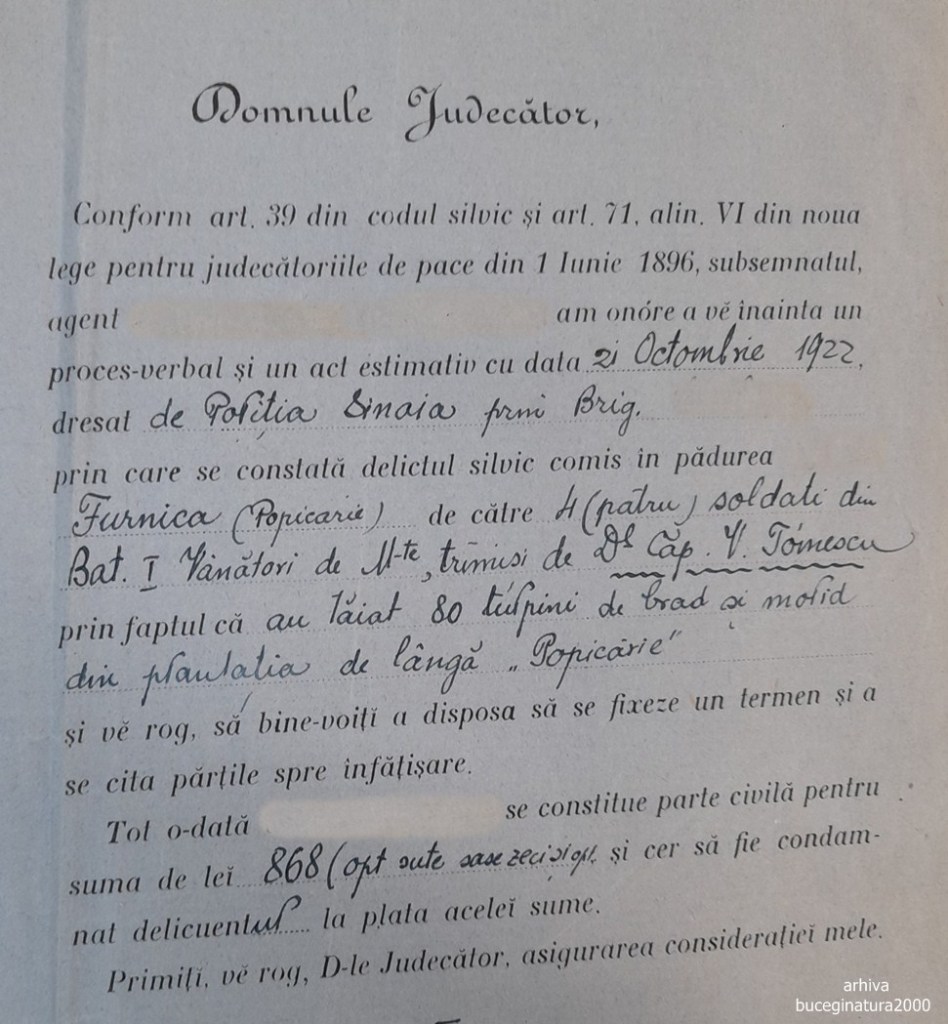 Domnule Judecător,
Conform art. 39 din codul silvic și art. 71, alin. VI din noua
lege pentru judecătoriile de pace din 1 Iunie 1896, subsemnatul,
agent am onóre a vĕ înainta un
proces-verbal și un act estimativ cu data 21 Octombrie 1922,
dresat de Poliția Sinaia prin Brig.
prin care se constată delictul silvic comis în pădurea
Furnica (Popicarie) de către 4 (patru) soldati din
Bat. I Vânători de M-te, trimisi de Dl Căp. V. Tomescu
prin faptul că au tăiat 80 tulpini de brad și molid
din plantatia de lângă „Popicărie"
și vĕ rog, să bine-voiți a disposa să se fixeze un termen și a
se cita părțile spre înfățișare.
Tot o-dată se constitue parte civilă pentru
suma de leĭ 868 (opt sute sase zeci și opt. și cer să fie condam-
nat delicuentul la plata aceleĭ sume.
Primiți, vĕ rog, D-le Judecător, asigurarea considerațieĭ mele.
arhiva
buceginatura2000